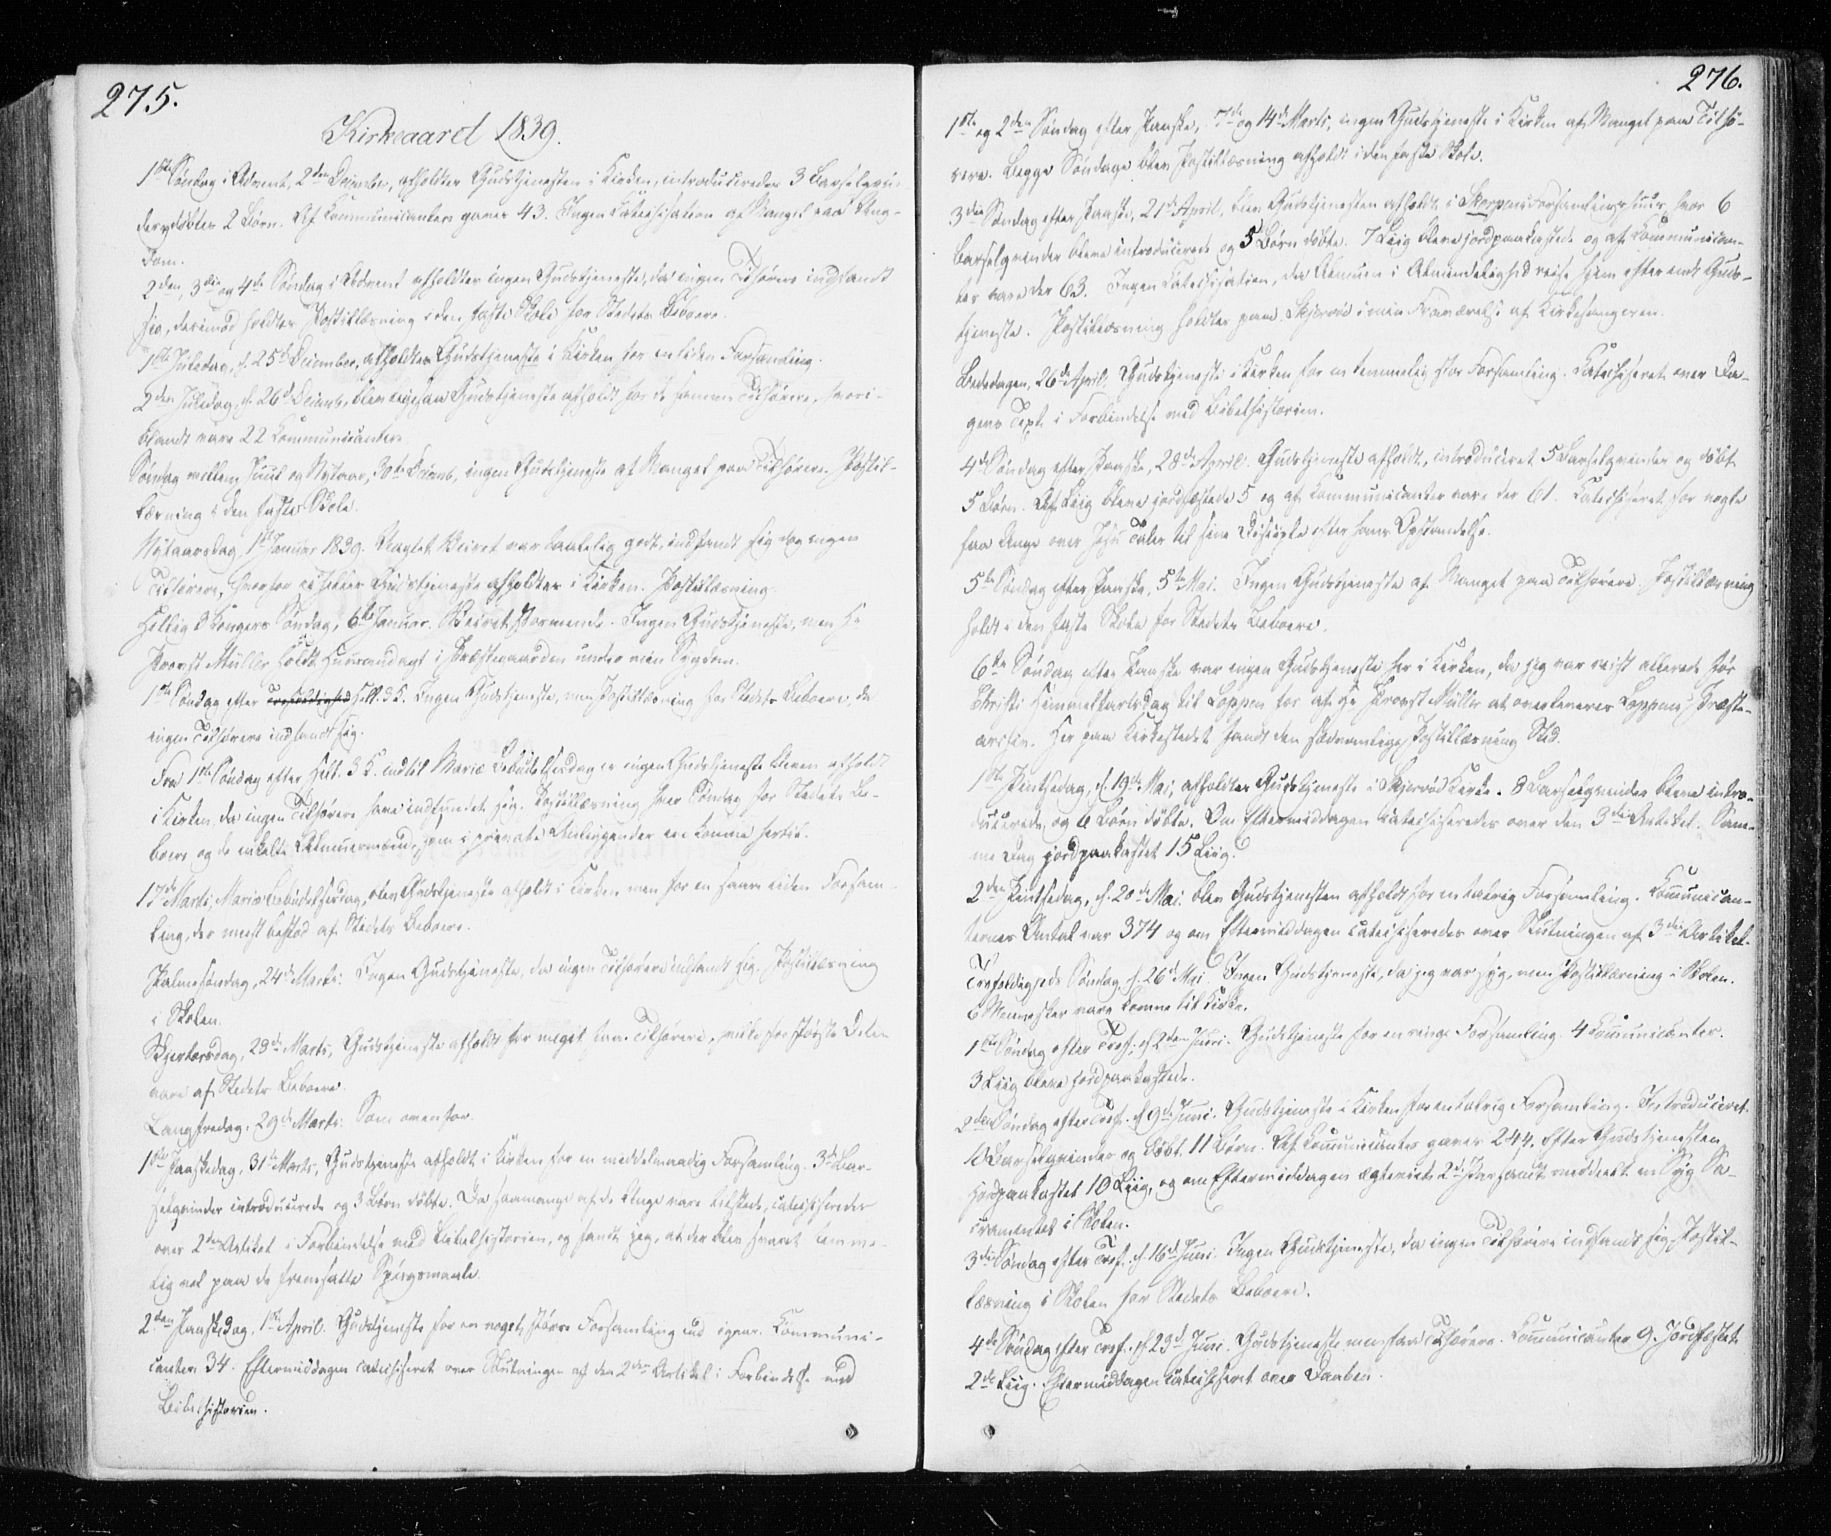 275.
Kirkeaaret 1839.
1ste Søndag i Advent, 2den December, afholdtes Gudstjenesten i Kirken, introduceredes 3 Barselqvin-
der og døbtes 2 Børn. Af Communicanter gaves 43. Ingen Catechisation af Mangel paa Ung-
dom.
2den, 3die og 4de Søndag i Advent afholdtes ingen Gudstjeneste, da ingen Tilhørere indfandt
sig, derimod holdtes Postillæsning i den faste Skole for Stedets Beboere.
1ste Juledag, d. 25de December, afholdtes Gudstjeneste i Kirken for en liden Forsamling.
2den Juledag, d. 26de Decemb., blev ligesaa Gudstjeneste afholdt for de samme Tilhørere, hvori-
blandt vare 22 Communicantere.
Søndag mellem Juul og Nytaar, 30te Decemb., ingen Gudstjeneste af Mangel paa Tilhørere. Postil-
læsning i den faste Skole.
Nytaarsdag, 1ste Januar 1839. Uagtet Veiret var taalelig godt, indfandt sig dog ingen
Tilhørere, hvorfor ei heller Gudstjeneste afholdtes i Kirken. Postillæsning.
Hellig 3 Kongers Søndag, 6te Januar. Veiret stormende. Ingen Gudstjeneste, men Hr
Provst Müller holdt Huusandagt i Præstegaarden under min Sygdom.
1ste Søndag efter Hell. 3 K. Ingen Gudstjeneste, men Postillæsning for Stedets Beboere, da
ingen Tilhørere indfandt sig.
Fra 1ste Søndag efter Hell. 3 K. indtil Mariæ Bebudelsesdag er ingen Gudstjeneste bleven afholdt
i Kirken, da ingen Tilhørere have indfundet sig. Postillæsning hver Søndag for Stedets Be-
boere og de enkelte Almuesmænd, som i private Anliggender ere komne hertil.
17de Marts, Mariæ Bebudelsesdag, blev Gudstjeneste afholdt i Kirken, men for en saare liden Forsam-
ling, der meest bestod af Stedets Beboere.
Palmesøndag, 24de Marts. Ingen Gudstjeneste, da ingen Tilhørere indfandt sig. Postillæsning
i Skolen.
Skjertorsdag, 28de Marts, Gudstjeneste afholdt for meget faa Tilhørere, hvilke for største Delen
vare af Stedets Beboere.
Langfredag, 29de Marts. Som ovenfor.
1ste Paaskedag, 31te Marts, Gudstjeneste afholdt i Kirken for en middelmaadig Forsamling. 3de Bar-
selqvinder introducerede og 3 Børn døbte. Da saamange af de Unge vare tilstede, catechiseredes
over 2den Artikel i Forbindelse med Bibelhistorien, og fandt jeg, at der blev svaret temme-
lig vel paa de fremsatte Spørgsmaale.
2den Paaskedag, 1ste April. Gudstjeneste for en noget større Forsamling end igaar. Communi-
canter 34. Eftermiddagen catechiseret over Slutningen af den 2den Artikel i Forbindelse med
Bibelhistorien.
276.
1ste og 2den Søndag efter Paaske, 7de og 14de Marts, ingen Gudstjeneste i Kirken af Mangel paa Tilhø-
rere. Begge Søndage blev Postillæsning afholdt i den faste Skole.
3die Søndag efter Paaske, 21de April, blev Gudstjenesten afholdt i Skorpens Forsamlingshuus, hvor 6
Barselqvinder bleve introducerede og 5 Børn døbte. 7 Liig bleve jordpaakastede og af Communican-
ter vare der 63. Ingen Catechisation, da Almuen i Almindelighed reise hjem efter endt Guds-
tjeneste. Postillæsning holdtes paa Skjervø i min Fraværelse af Kirkesangeren.
Bededagen, 26de April, Gudstjeneste i Kirken for en temmelig stor Forsamling. Catechiseret over Da-
gens Text i Forbindelse med Bibelhistorien.
4de Søndag efter Paaske, 28de April. Gudstjeneste afholdt, introduceret 5 Barselqvinder og døbt
5 Børn. Af Liig bleve jordfæstede 5 og af Communicanter vare der 61. Catechiseret for nogle
faa Unge over Jesu Taler til sine Disciple efter hans Opstandelse.
5te Søndag efter Paaske, 5te Mai. Ingen Gudstjeneste af Mangel paa Tilhørere. Postillæsning
holdt i den faste Skole for Stedets Beboere.
6te Søndag efter Paaske var ingen Gudstjeneste her i Kirken, da jeg var reist allerede før
Christi Himmelfartsdag til Loppen for af Hr Provst Müller at overleveres Loppens Præste-
archiv. Her paa Kirkestedet fandt den sædvanlige Postillæsning Sted.
1ste Pintsedag, d. 19de Mai, afholdtes Gudstjeneste i Skjervø Kirke. 8 Barselqvinder bleve intro-
ducerede, og 6 Børn døbte. Om Eftermiddagen catechiseredes over den 3die Artikel. Sam-
me Dag jordpaakastet 15 Liig.
2den Pintsedag, d. 20de Mai blev Gudstjenesten afholdt for en talrig Forsamling. Communican-
ternes Antal var 374 og om Eftermiddagen catechiseredes over Slutningen af 3die Artikel.
Trefoldigheds Søndag, d. 26de Mai. Ingen Gudstjeneste, da jeg var syg, men Postillæsning i Skolen.
6 Mennesker vare komne til Kirke.
1ste Søndag efter Tref. d. 2den Juni. Gudstjeneste for en ringe Forsamling. 4 Communicanter.
3 Liig bleve jordpaakastede.
2den Søndag efter Tref. d. 9de Juni. Gudstjeneste i Kirken for en talrig Forsamling. Introduceret
10 Barselqvinder og døbt 11 Børn. Af Communicanter gaves 244. Efter Gudstjenesten
jordpaakastet 10 Liig, og om Eftermiddagen ægteviet 2de Par samt meddeelt en Syg Sa-
cramentet i Skolen.
3die Søndag efter Tref. d. 16de Juni. Ingen Gudstjeneste, da ingen Tilhørere indfandt sig. Postil-
læsning i Skolen for Stedets Beboere.
4de Søndag efter Tref. d. 23de Juni. Gudstjeneste men faa Tilhørere. Communicanter 9. Jordfæstet
2de Liig. Eftermiddagen catechiseret over Daaben.